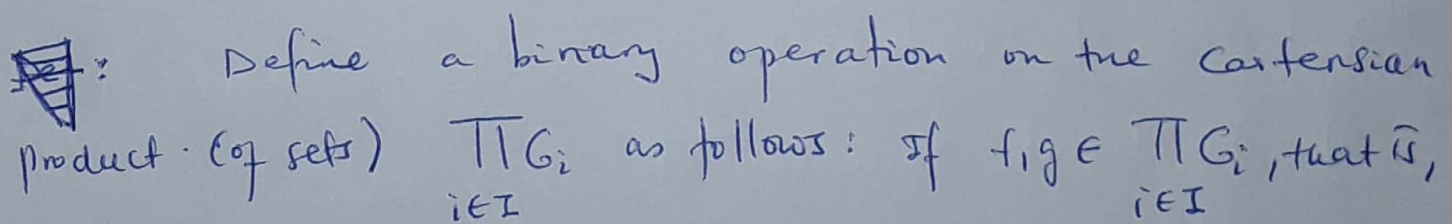 : Define a binary operation on the Cartensian
product. (of sets) ∏ Gᵢ as follows: If f, g ∈ ∏ Gᵢ, that is,
i∈I i∈I